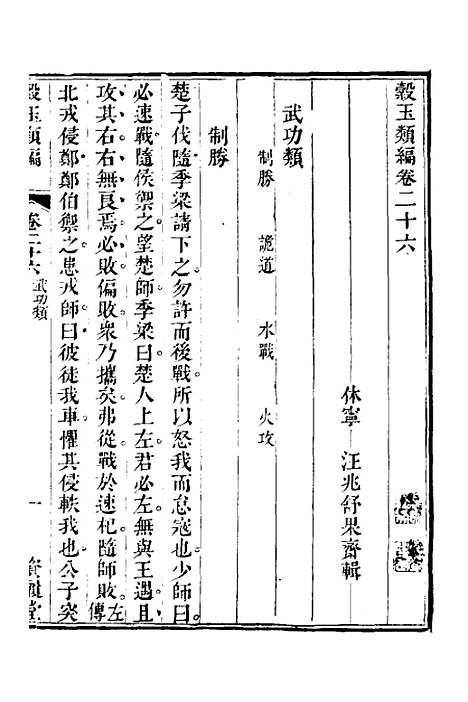 穀玉類編卷二十六
休寧 汪兆舒果齋輯
武功類
制勝 詭道 水戰 火攻
制勝
楚子伐隨季梁請下之勿許而後戰所以怒我而怠寇也少師曰
必速戰隨侯禦之望楚師季梁曰楚人上左君必左無與王遇且
攻其右右無良焉必敗偏敗衆乃攜矣弗從戰於速杞隨師敗左傳
北戎侵鄭鄭伯禦之患戎師曰彼徒我車懼其侵軼我也公子突
穀玉類編 卷二十六 武功類 一